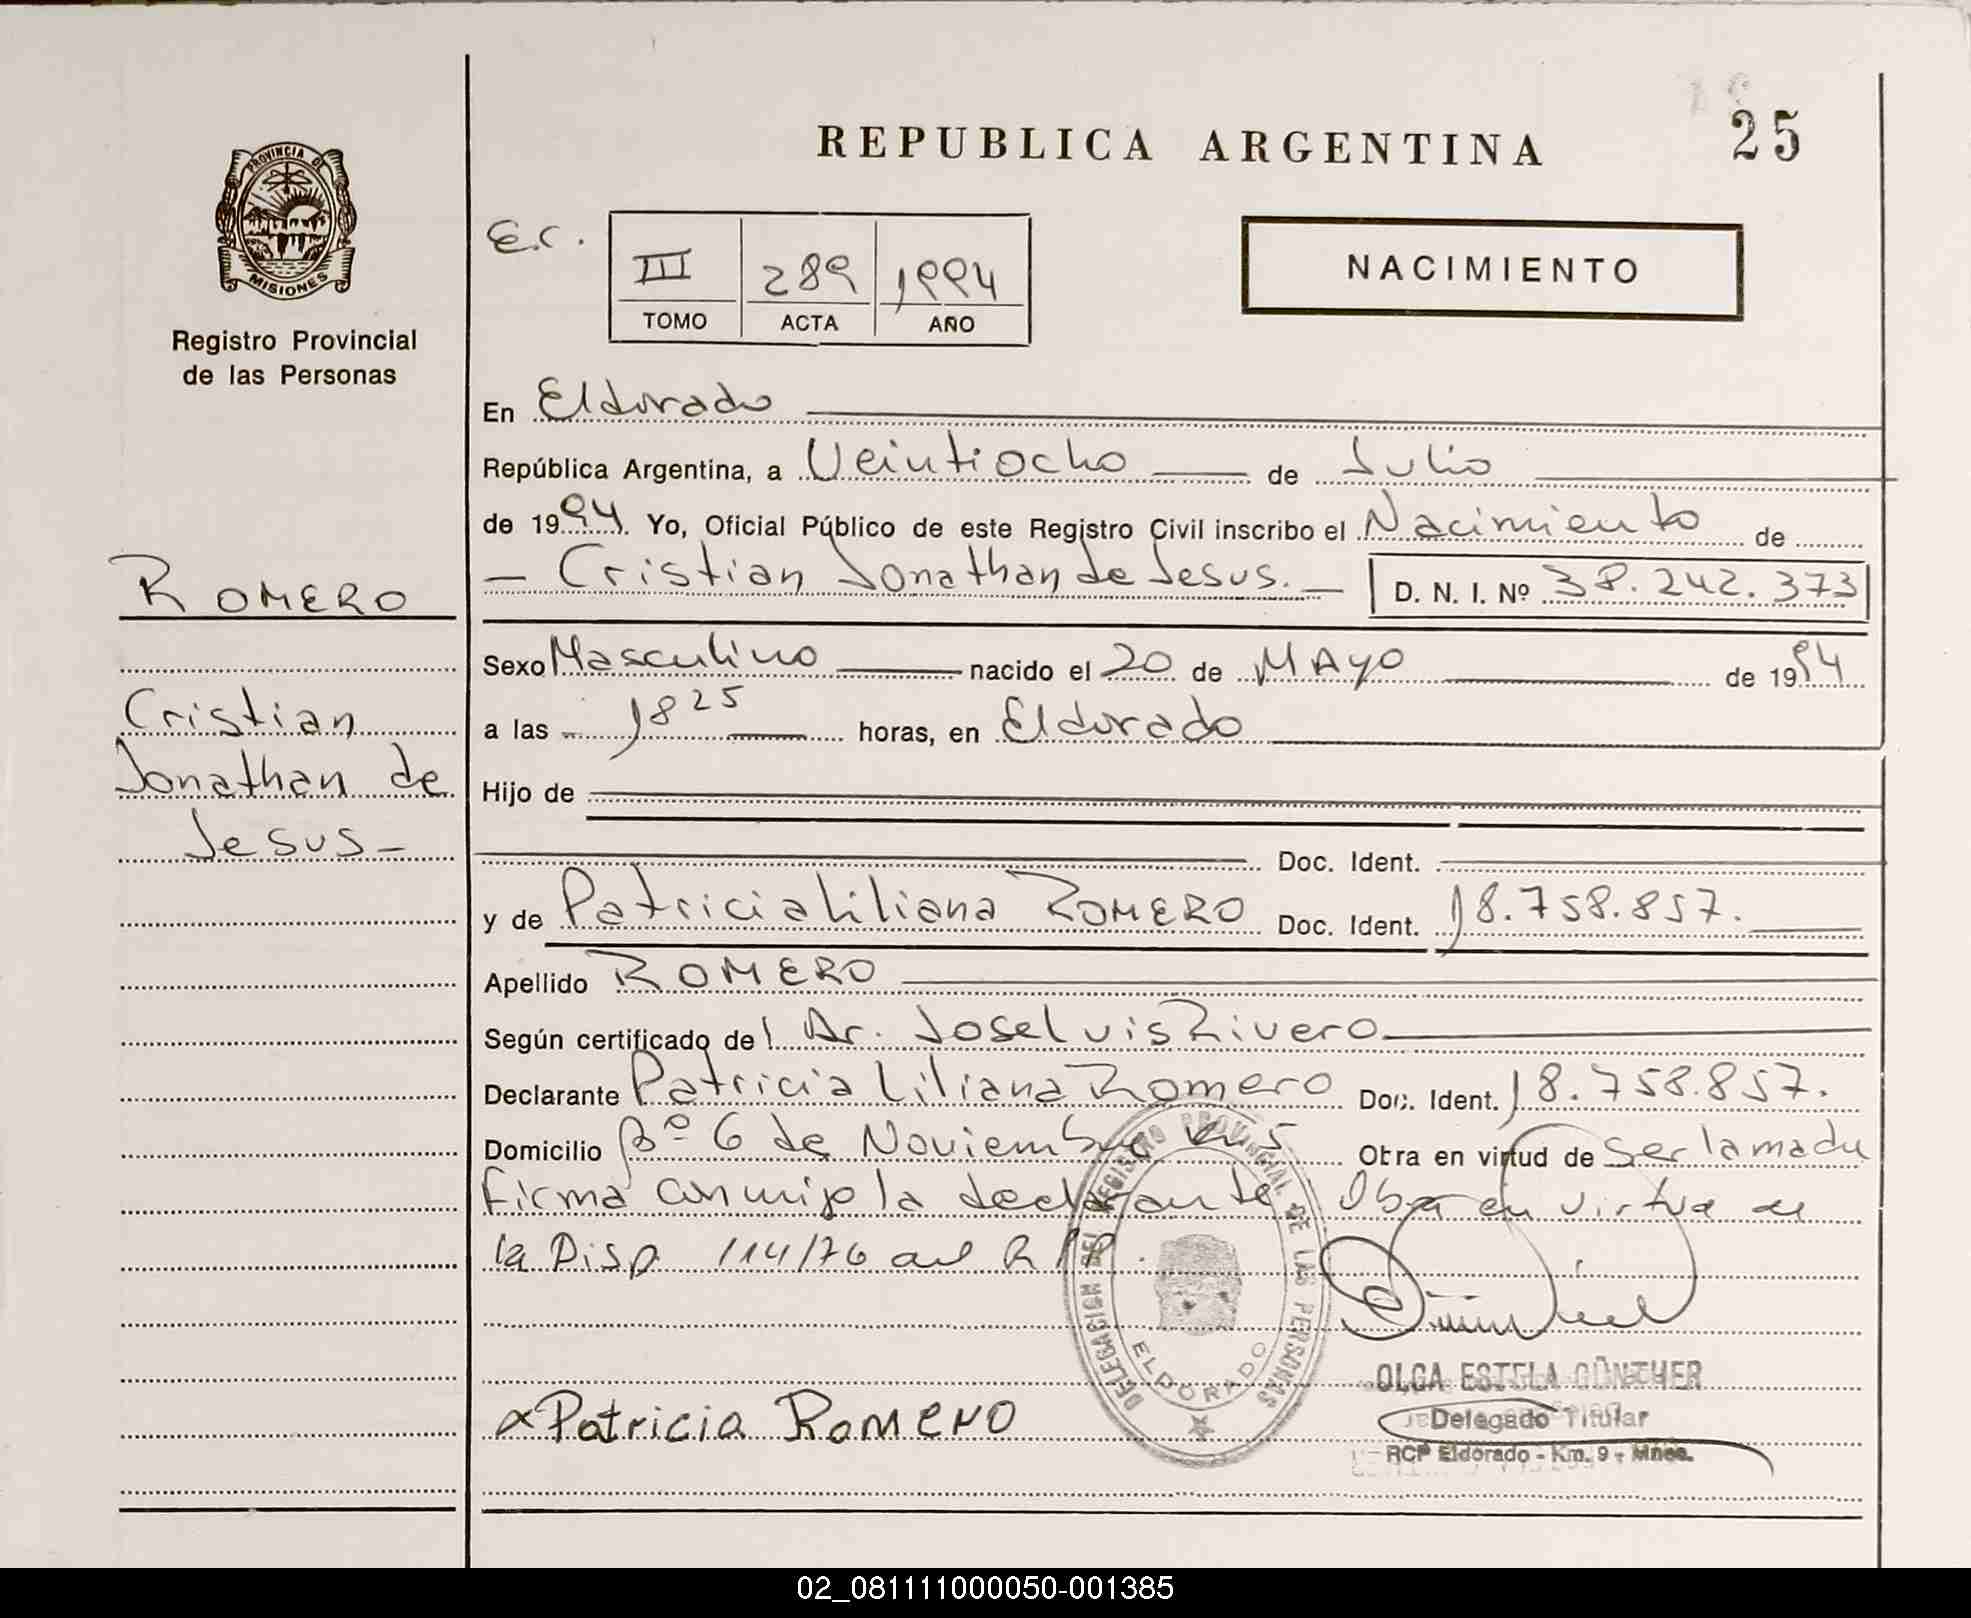 REPUBLICA ARGENTINA
25
PROVINCIA DE
MISIONES
Registro Provincial
de las Personas
E.C.
III 289 1994
TOMO ACTA AÑO
NACIMIENTO
En Eldorado
República Argentina, a Veintiocho de Julio
de 1994. Yo, Oficial Público de este Registro Civil inscribo el Nacimiento de
— Cristian Jonathan de Jesus. — D. N. I. Nº 38.242.373
ROMERO
Cristian
Jonathan de
Jesus —
Sexo Masculino nacido el 20 de MAYO de 1994
a las 18 25 horas, en Eldorado
Hijo de
Doc. Ident.
y de Patricia Liliana ROMERO Doc. Ident. 18.758.857.
Apellido ROMERO
Según certificado del Dr. Jose Luis Rivero
Declarante Patricia Liliana Romero Doc. Ident. 18.758.857.
Domicilio Bº 6 de Noviembre Km 5 Obra en virtud de ser la madre
firma conmigo la declarante Obra en virtud de
la Disp 114/76 del R P P.
DELEGACION DEL REGISTRO PROVINCIAL DE LAS PERSONAS
ELDORADO
OLGA ESTELA GÜNTHER
Delegado Titular
RCP Eldorado - Km. 9 - Mnes.
x Patricia Romero
02_081111000050-001385